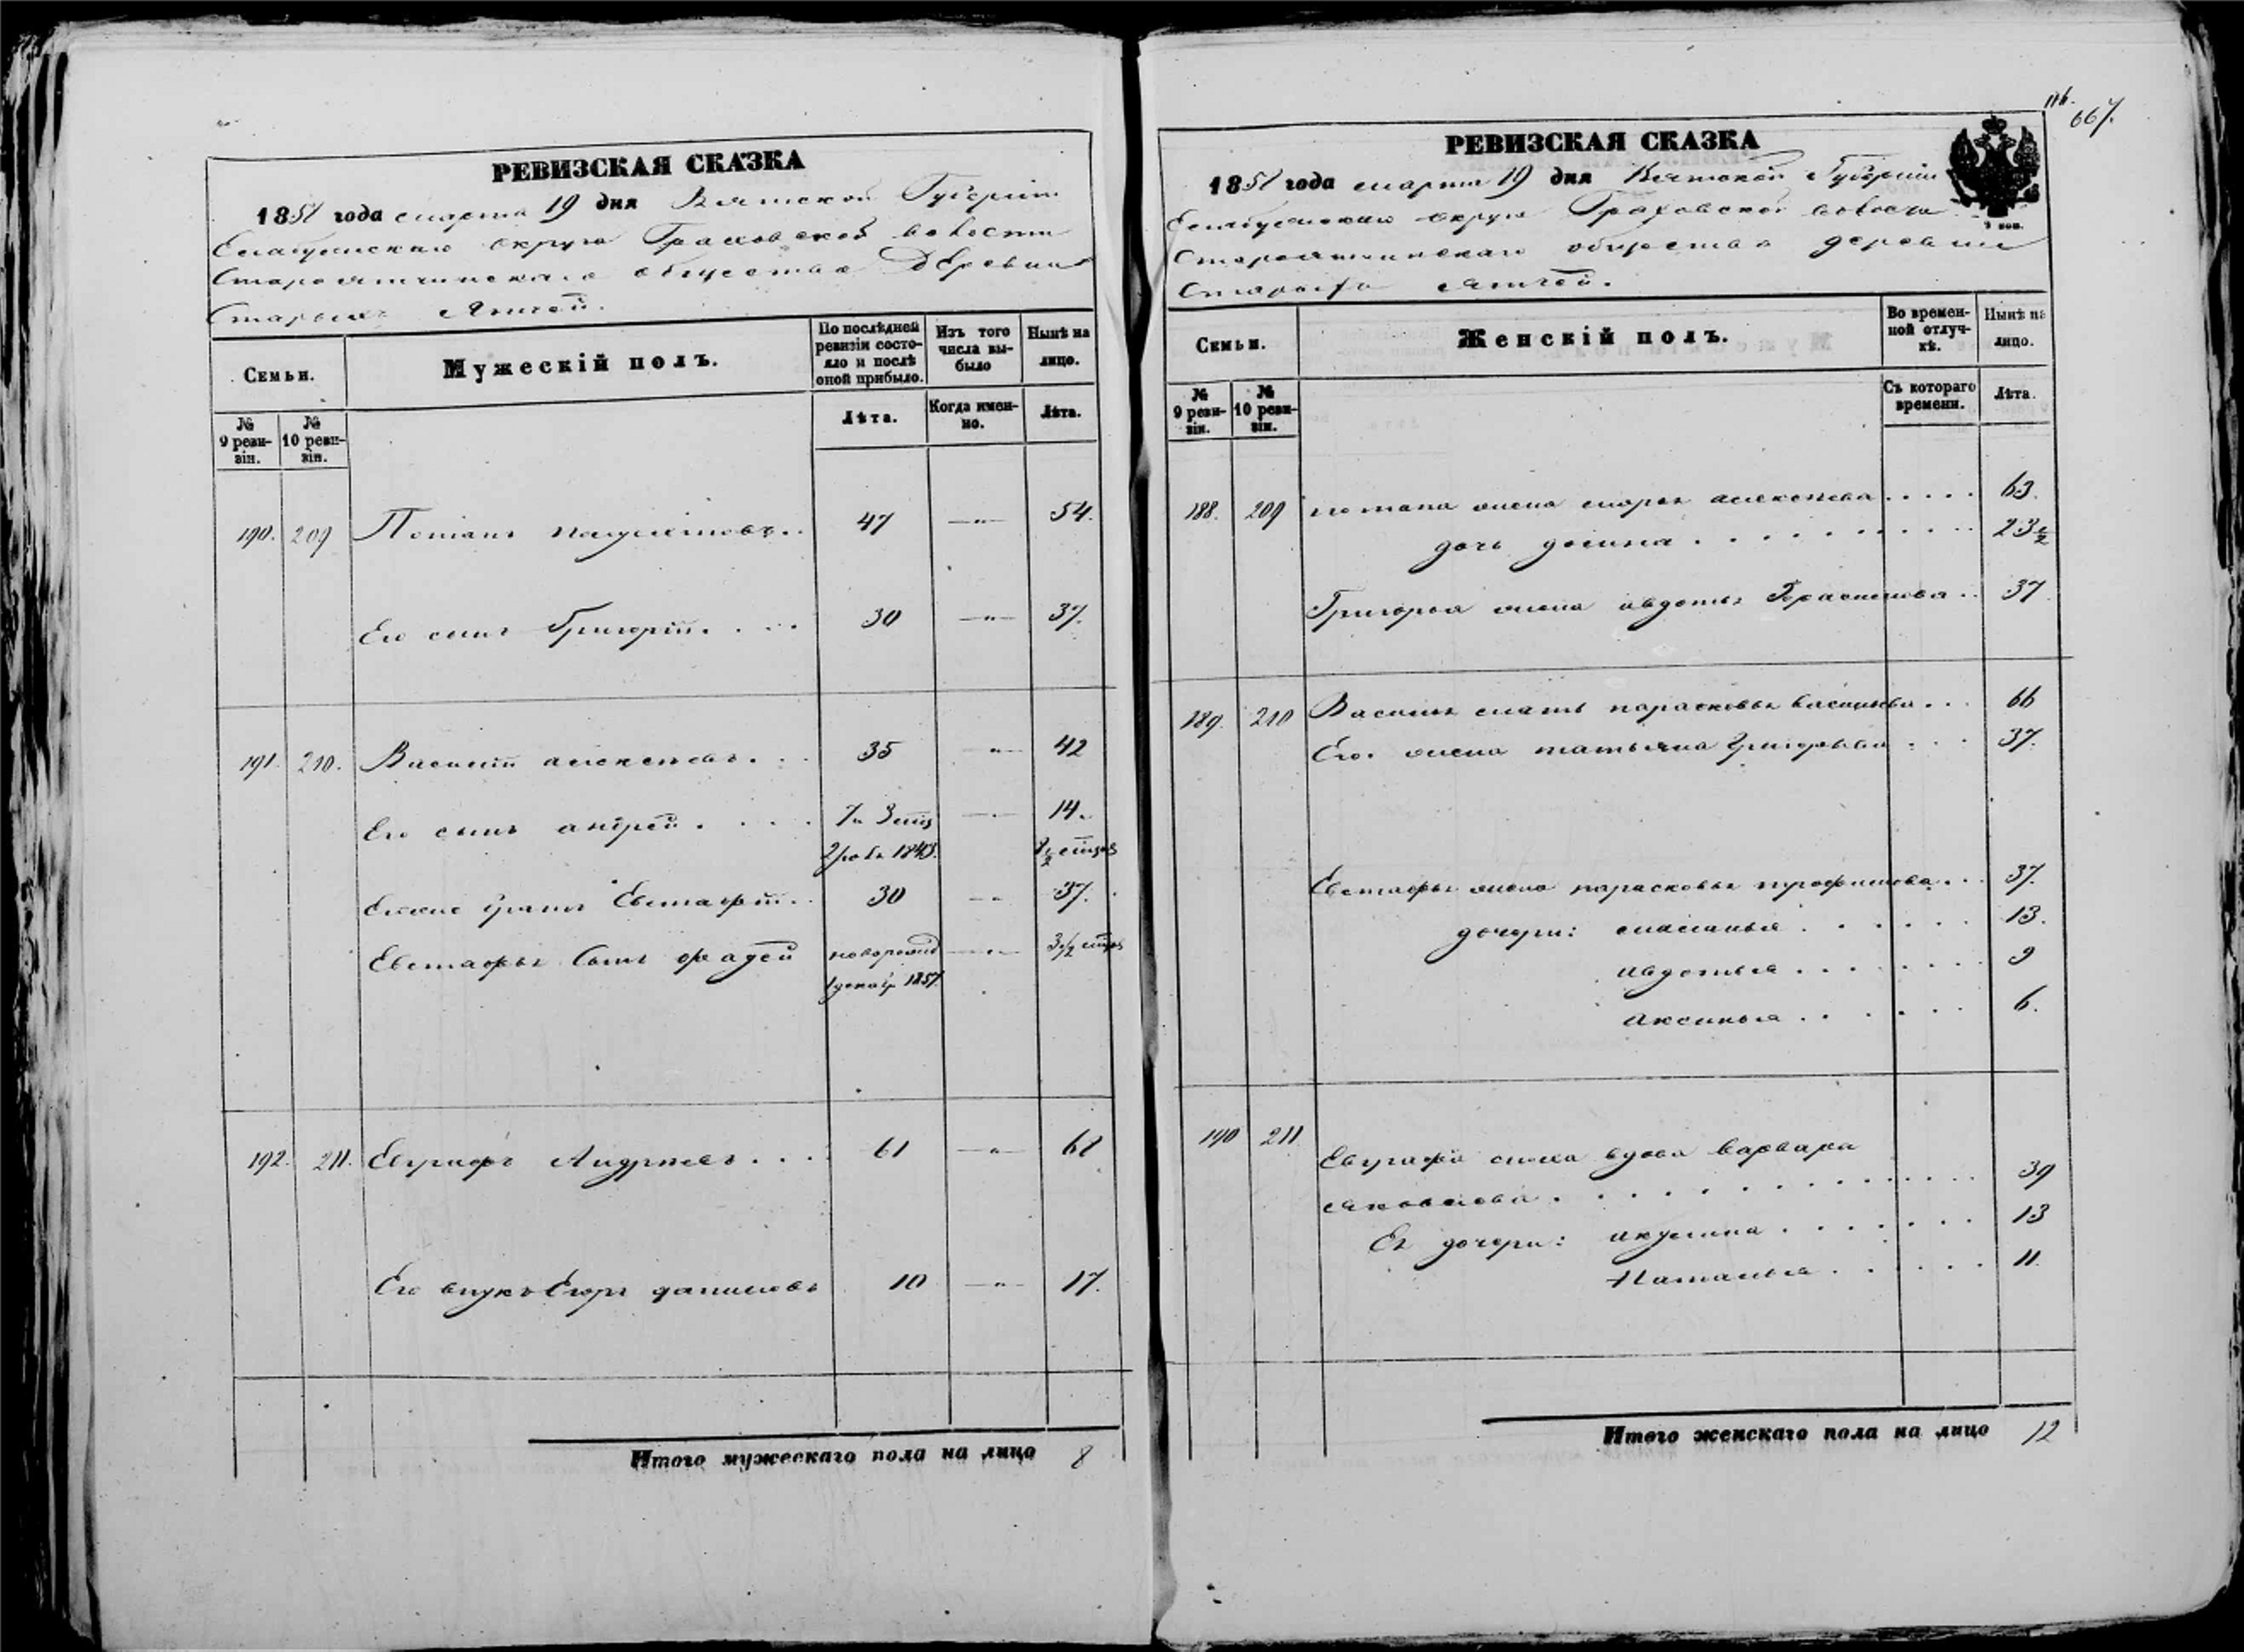 116.
667.
РЕВИЗСКАЯ СКАЗКА
1858 года марта 19 дня Вятской Губерніи
Елабужскаго округа Граховской волости
Староятчинскаго общества Деревни
Старыхъ Ятчей.
Семьи.
Мужескій полъ.
По послѣдней ревизіи состояло и послѣ оной прибыло.
Изъ того числа выбыло
Нынѣ на лицо.
№ 9 ревизіи.
№ 10 ревизіи.
Лѣта.
Когда именно.
Лѣта.
190. 209 Потапъ 47 —"— 54.
Его сынъ Григорій. . . . 30 —"— 37.
191. 210. Василій алексѣевъ. . . 35 —"— 42
Его сынъ андрей . . . . 14.
1843.
Евстафій. . 30 —"— 37.
Евстафья Сынъ фадей новорожд —"—
1 декабр 1857.
192. 211. Евграфъ Андреевъ . . . . 61 —"— 68
Его внукъ Егоръ даниловъ 10 —"— 17.
Итого мужескаго пола на лицо 8
РЕВИЗСКАЯ СКАЗКА
1858 года марта 19 дня Вятской Губерніи
Елабужскаго округа Граховской волости
Староятчинскаго общества деревни
Старыхъ Ятчей.
Семьи.
Женскій полъ.
Во временной отлучкѣ.
Нынѣ на лицо.
№ 9 ревизіи.
№ 10 ревизіи.
Съ котораго времени.
Лѣта.
188. 209 потапа жена марья алексѣева . . . . . 63.
дочь . . . . . . . . . 23½
Григорья жена авдотья Герасимова . . 37
189. 210 Василья мать парасковья васильева . . . 66
Его жена татьяна Григорьева . . . 37.
Евстафья жена парасковья трофимова . . . 37.
дочери: маланья . . . . . . 13.
авдотья . . . . . . . 9
Аксинья . . . . . . 6.
190 211 Евграфа сноха вдова варвара
. . . . . . . . . . . . . 39
Ея дочери: акулина . . . . . . . 13
Наталья . . . . . . 11.
Итого женскаго пола на лицо 12